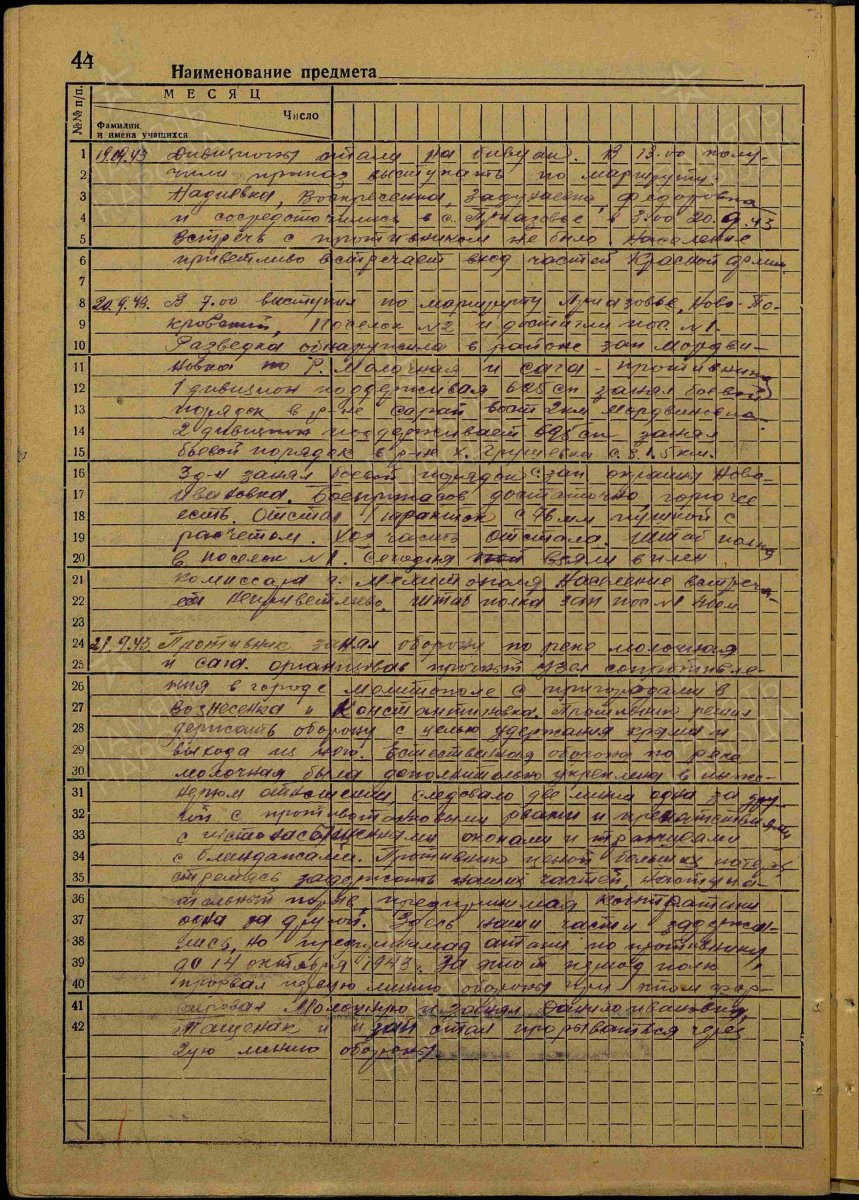 44
Наименование предмета
№№ п/п.
МЕСЯЦ
Число
Фамилии
и имена учащихся
1 19.09.43 Дивизионы встали на бивуак. В 13.00 полу-
2 чили приказ выступать по маршруту
3 Надиевка, Воскресенка, Федоровка
4 и сосредоточились в с. Приазовье в 3.00 20.9.43
5 Встреч с противником не было. Население
6 приветливо встречает вход частей Красной армии.
7
8 20.9.43. В 7.00 выступил по маршруту Приазовье, Ново-По-
9 кровский, Поселок №2 и достигли пос. №1.
10 Разведка обнаружила в районе зап Мордви-
11 новка по р. Молочная и сага - противника
12 1 дивизион поддерживая 685 сп занял боевой
13 порядок в р-не сарай вост 2 км Мордвиновка.
14 2 дивизион поддерживает 695 сп занял
15 боевой порядок в р-не х. Грушевка с.в. 1.5 км.
16 3 д-н занял боевой порядок с-зап окраины Ново-
17 Ивановка. Боеприпасов достаточно, горючее
18 есть. Отстал 1 трактор с 76 мм пушкой с
19 расчетом. Хоз часть отстала. Штаб полка
20 в поселок №1. Сегодня взяли в плен
21 комиссара г. Мелитополя. Население встреча-
22 ет неприветливо. Штаб полка зап пос №1
23
24 21.9.43. Противник занял оборону по реке молочная
25 и сага. организовав прочный узел сопротивле-
26 ния в городе Мелитополе с пригородами в
27 Вознесенка и Константиновка. Противник решил
28 держать оборону с целью удержания крыма и
29 выхода из него. Естественная оборона по реке
30 молочная была дополнительно укреплена в инже-
31 нерном отношении, следовало две линии одна за дру-
32 гой с противотанковыми рвами и препятствиями
33 с окопами и траншеями
34 с блиндажами. Противник ценой больших потерь
35 стремясь задержать наших частей, наступа-
36 тельный порыв, предпринимая контратаки
37 одна за другой. Здесь наши части задержа-
38 лись, но предпринимая атаки по противнику
39 до 14 октября 1943г. За этот период полк
40 прорвал первую линию обороны при этом фор-
41 сировал Молочную и занял Данило-Ивановка,
42 Тащенак и стал прорываться через
2ую линию обороны